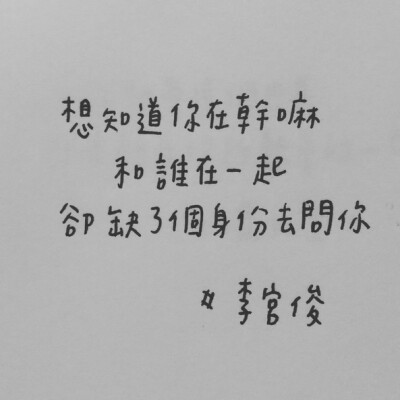 想知道你在幹嘛
和誰在一起
卻缺了個身份去問你
#李宮俊